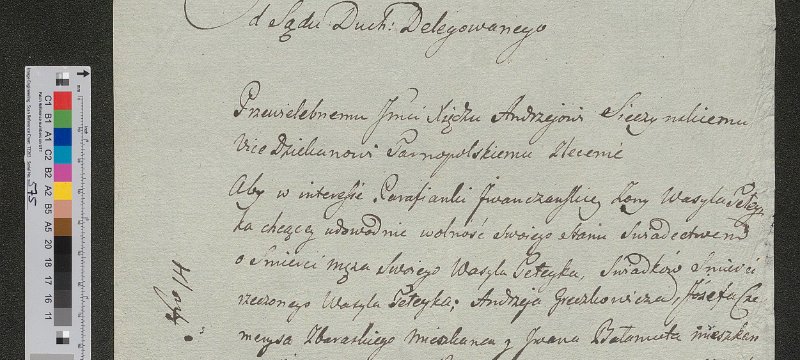 Od Sądu Duch: Delegowanego
Przewielebnemu Jmci Xiędzu Andrzejowi Sieczyńskiemu
Vice Dziekanowi Tarnopolskiemu Zlecenie
Aby w interesie Parafianki Jwanczanskiey Zony Wasyla Peley
ka chcącey udowodnic wolność swoiego stanu Swiadectwem
o Smierci męza swoiego Wasyla Peteyka, Swiadków Smierci
rzeczonego Wasyla Peteyka; Andrzeja Greczkowicza, Jozefa Cze
merysa Zbaraskiego Mieszkanca y Jwana Bałamuta mieszkan
575
C1 B1 A1 C2 B2 A2 B5 A5 20 18 17 16 11